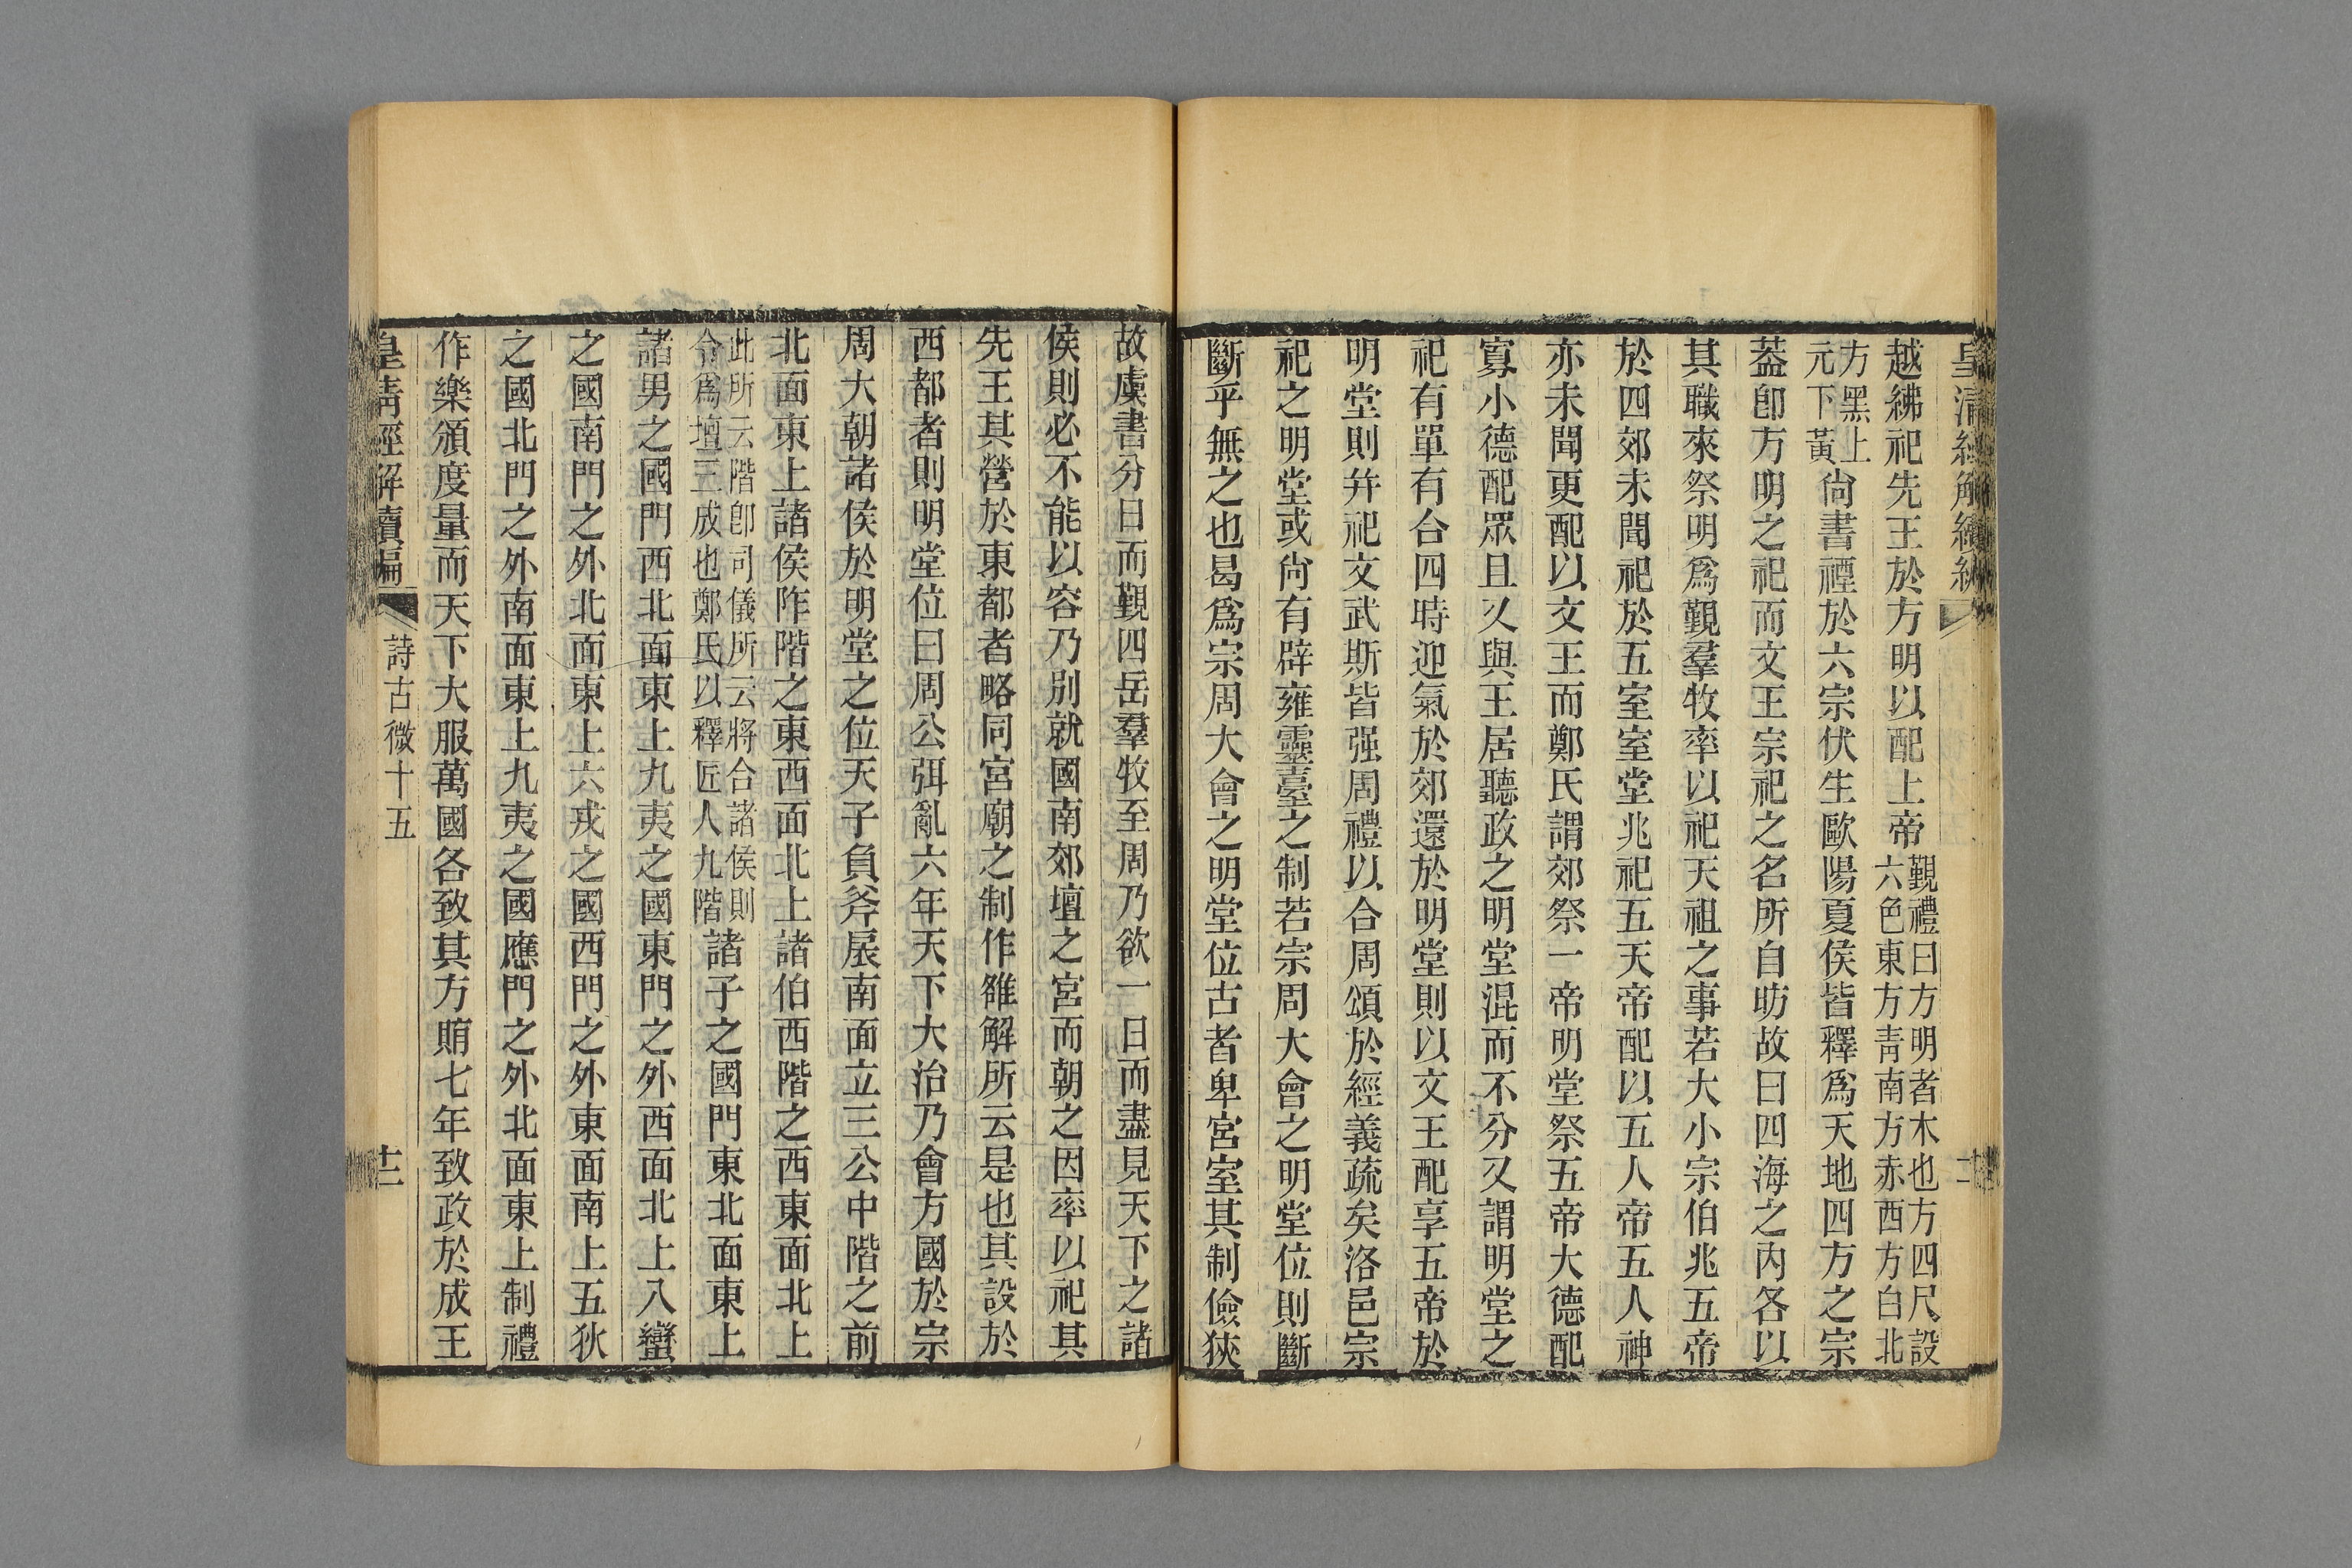 皇清經解續編
越紼祀先王於方明以配上帝覲禮曰方明者木也方四尺設六色東方青南方赤西方白北
方黑上元下黃尙書禋於六宗伏生歐陽夏侯皆釋爲天地四方之宗
葢卽方明之祀而文王宗祀之名所自昉故曰四海之內各以
其職來祭明爲覲羣牧率以祀天祖之事若大小宗伯兆五帝
於四郊未聞祀於五室室堂兆祀五天帝配以五人帝五人神
亦未聞更配以文王而鄭氏謂郊祭一帝明堂祭五帝大德配
寡小德配眾且乂與王居聽政之明堂混而不分又謂明堂之
祀有單有合四時迎氣於郊還於明堂則以文王配享五帝於
明堂則幷祀文武斯皆强周禮以合周頌於經義疏矣洛邑宗
祀之明堂或尙有辟雍靈臺之制若宗周大會之明堂位則斷
斷乎無之也曷爲宗周大會之明堂位古者卑宮室其制儉狹
故虞書分日而覲四岳羣牧至周乃欲一日而盡見天下之諸
侯則必不能以容乃別就國南郊壇之宮而朝之因率以祀其
先王其營於東都者略同宮廟之制作雒解所云是也其設於
西都者則明堂位曰周公弭亂六年天下大治乃會方國於宗
周大朝諸侯於明堂之位天子負斧扆南面立三公中階之前
北面東上諸侯阼階之東西面北上諸伯西階之西東面北上
此所云階卽司儀所云將合諸侯則令爲壇三成也鄭氏以釋匠人九階諸子之國門東北面東上
諸男之國門西北面東上九夷之國東門之外西面北上八蠻
之國南門之外北面東上六戎之國西門之外東面南上五狄
之國北門之外南面東上九夷之國應門之外北面東上制禮
作樂頒度量而天下大服萬國各致其方賄七年致政於成王
皇清經解續編 詩古微十五 十二